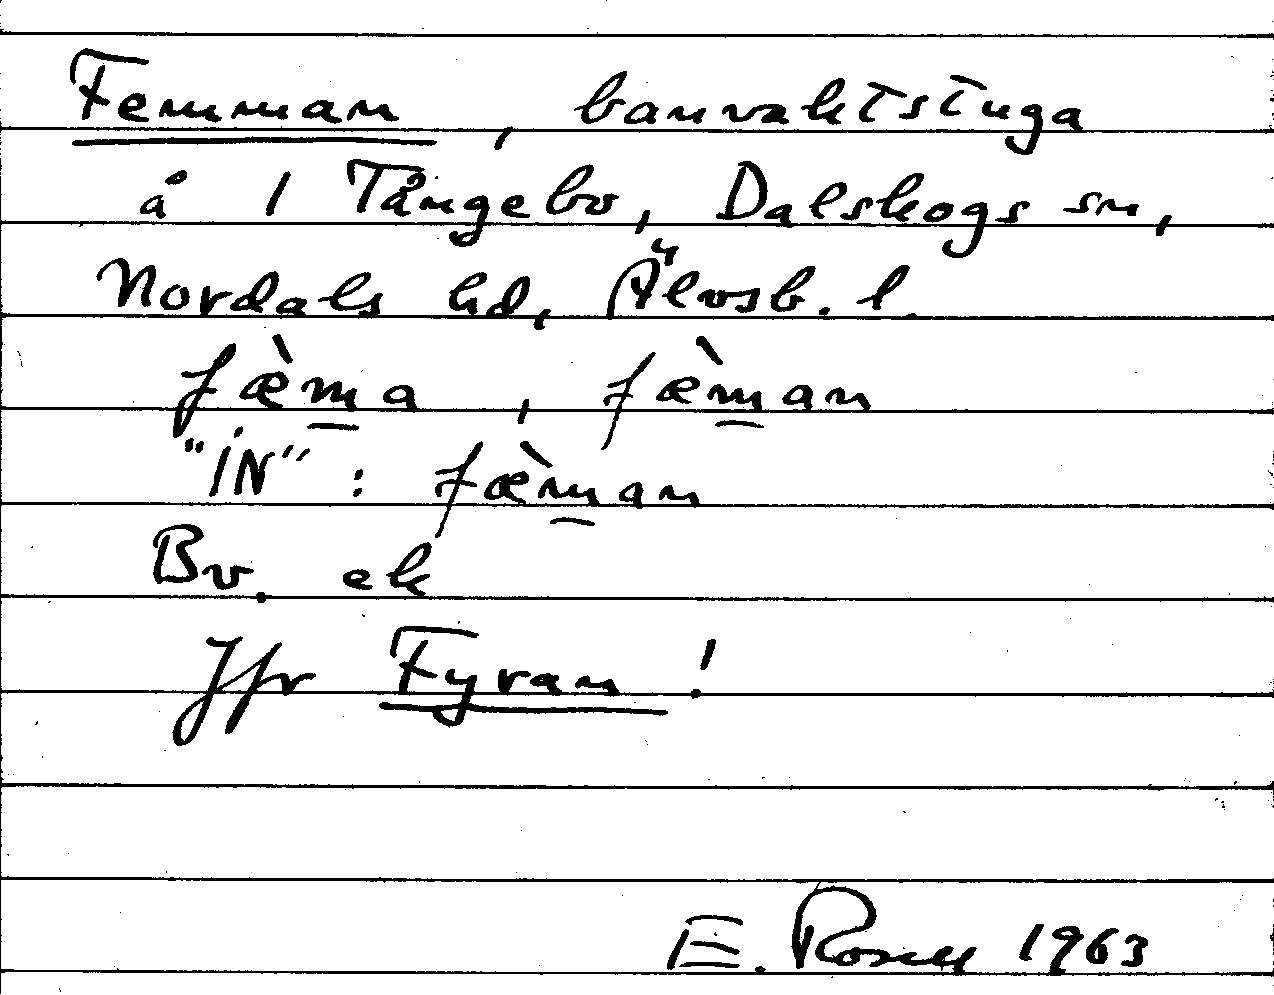 Femman, banvaktstuga
å 1 Tångebo, Dalskogs sn,
Nordals hd, Älvsb. l.
fæ̀m̲a, fæ̀m̲an
"IN": fæ̀m̲an
Bv. ek
Jfr Fyran!
E. Rosell 1963